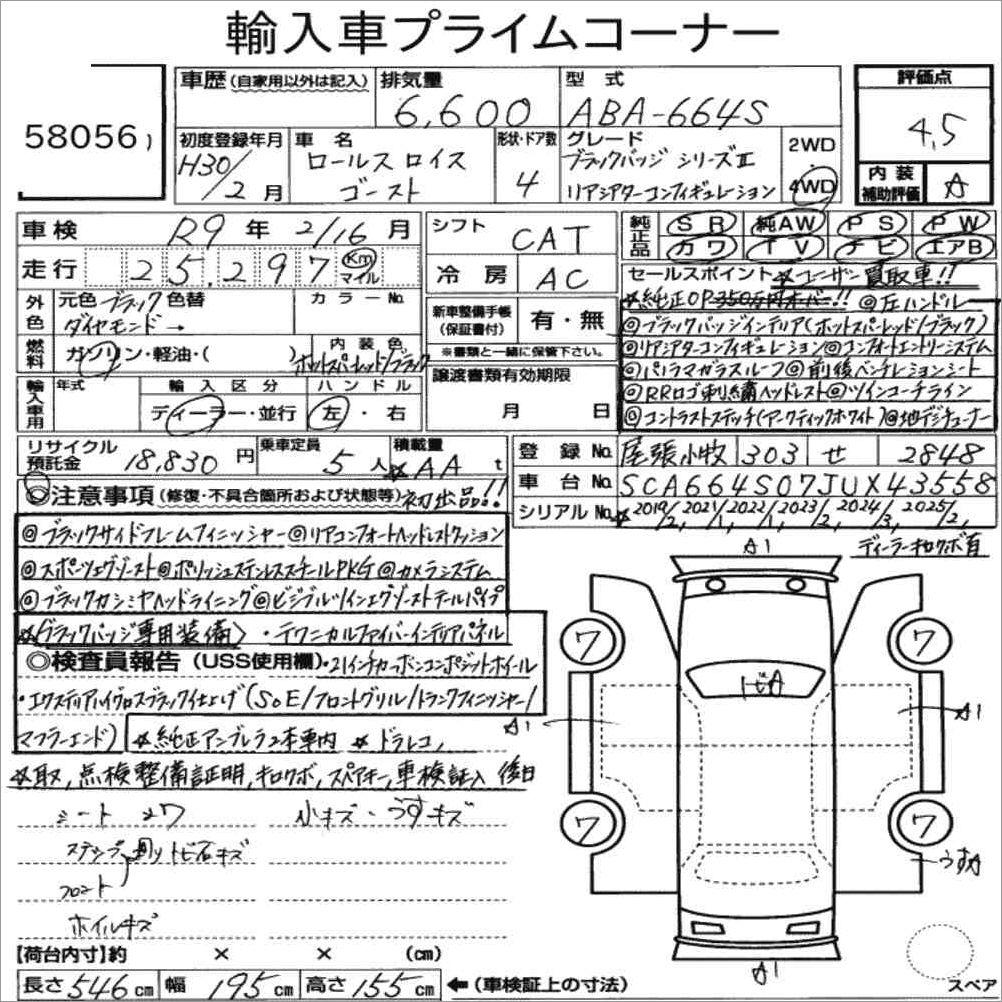 輸入車プライムコーナー
58056
車歴 (自家用以外は記入)
排気量
6,600
型式
ABA-664S
評価点
4.5
初度登録年月
H30/2月
車名
ロールスロイス
ゴースト
形状・ドア数
4
グレード
ブラックバッジ シリーズⅡ
リアシアターコンフィギュレーション
2WD
・
4WD
内装
補助評価
A
車検 R9年 2/16月
走行 25,297 Km マイル
シフト CAT
冷房 AC
純正品
SR 純AW PS PW
カワ TV ナビ エアB
外色
元色 ブラック 色替
ダイヤモンド→
カラーNo.
燃料 ガソリン・軽油・( )
内装色
ホットスパーレッド/ブラック
新車整備手帳
(保証書付)
有・無
※書類と一緒に保管下さい。
輸入車用
年式
輸入区分
ディーラー・並行
ハンドル
左・右
譲渡書類有効期限
月 日
セールスポイント ☆ユーザー買取車!!
☆純正OP350万円オーバー!! @左ハンドル
@ブラックバッジインテリア(ホットスパーレッド/ブラック)
@リアシアターコンフィギュレーション@コンフォートエントリーシステム
@パノラマガラスルーフ@前後ベンチレーションシート
@RRロゴ刺繍ヘッドレスト@ツインコーチライン
@コントラストステッチ(アークティックホワイト)@地デジチューナー
リサイクル
預託金 18,830円
乗車定員 5人
積載量 ☆AA t
登録No. 尾張小牧 303 せ 2848
車台No. SCA664S07JUX43558
シリアルNo. ☆2019/2, 2021/1, 2022/1, 2023/2, 2024/3, 2025/2,
ディーラーキロクボ有
◎注意事項(修復・不具合箇所および状態等)初出品!!
@ブラックサイドフレームフィニッシャー@リアコンフォートヘッドレストクッション
@スポーツエグゾースト@ポリッシュステンレススチールPKG@カメラシステム
@ブラックカシミヤヘッドライニング@ビジブルツインエグゾーストテールパイプ
☆〈ブラックバッジ専用装備〉・テクニカルファイバーインテリアパネル
◎検査員報告(USS使用欄)・21インチカーボンコンポジットホイール
・エクステリアハイグロスブラック仕上げ(SoE/フロントグリル/トランクフィニッシャー/
マフラーエンド) ☆純正アンブレラ2本車内 ☆ドラレコ,
☆取,点検整備証明,キロクボ,スペアキー,車検証入 後日
シート スワ
小キズ・うすキズ
ステップ 廻り トビ石キズ
フロント
ホイルキズ
A1
ワ
ワ
トビA
A1
A1
ワ
ワ
うすA
A1
スペア
【荷台内寸】約 × × (cm)
長さ546cm 幅195cm 高さ155cm ←(車検証上の寸法)